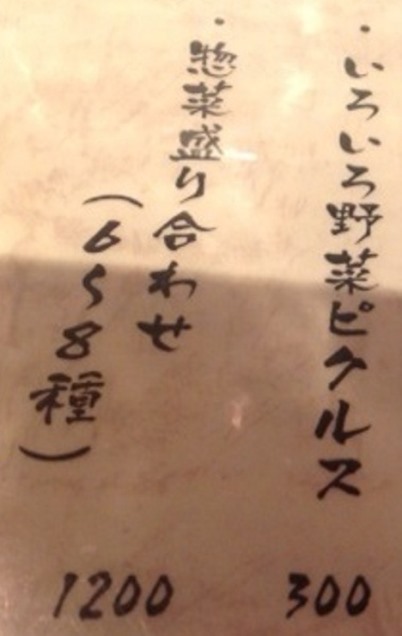 ・いろいろ野菜ピクルス
300
・惣菜盛り合わせ
(6〜8種)
1200